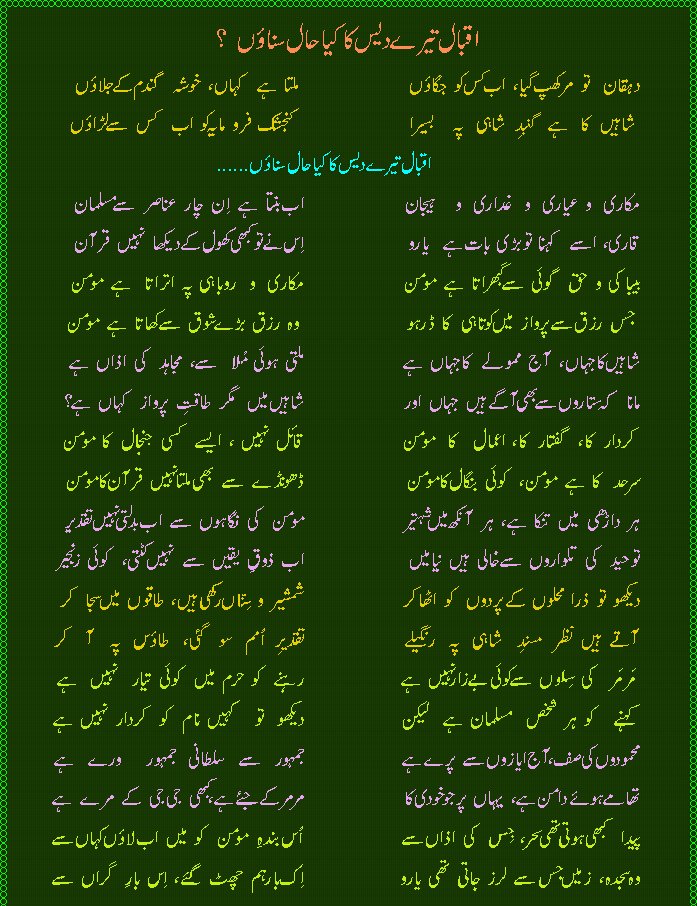 اقبال تیرے دیس کا کیا حال سناؤں ؟
دہقان تو مرکھپ گیا، اب کس کو جگاؤں ملتا ہے کہاں، خوشہ گندم کے جلاؤں
شاہیں کا ہے گنبدِ شاہی پہ بسیرا کنجشک فرو مایہ کو اب کس سے لڑاؤں
اقبال تیرے دیس کا کیا حال سناؤں......
مکاری و عیاری و غداری و ہیجان اب بنتا ہے اِن چار عناصر سے مسلمان
قاری، اسے کہنا تو بڑی بات ہے یارو اِس نے تو کبھی کھول کے دیکھا نہیں قرآن
بیباکی و حق گوئی سے گھبراتا ہے مومن مکاری و روباہی پہ اتراتا ہے مومن
جس رزق سے پرواز میں کوتاہی کا ڈر ہو وہ رزق بڑے شوق سے کھاتا ہے مومن
شاہیں کا جہاں، آج ممولے کا جہاں ہے ملتی ہوئی مُلا سے، مجاہد کی اذاں ہے
مانا کہ ستاروں سے بھی آگے ہیں جہاں اور شاہیں میں مگر طاقتِ پرواز کہاں ہے؟
کردار کا، گفتار کا، اعمال کا مومن قائل نہیں، ایسے کسی جنجال کا مومن
سرحد کا ہے مومن، کوئی بنگال کا مومن ڈھونڈے سے بھی ملتا نہیں قرآن کا مومن
ہر داڑھی میں تنکا ہے، ہر آنکھ میں شہتیر مومن کی نگاہوں سے اب بدلتی نہیں تقدیر
توحید کی تلواروں سے خالی ہیں نیامیں اب ذوقِ یقیں سے نہیں کٹتی، کوئی زنجیر
دیکھو تو ذرا محلوں کے پردوں کو اٹھا کر شمشیر و سِناں رکھی ہیں، طاقوں میں سجا کر
آتے ہیں نظر مسندِ شاہی پہ رنگیلے تقدیرِ اُمم سو گئی، طاؤس پہ آ کر
مَرمَر کی سِلوں سے کوئی بے زار نہیں ہے رہنے کو حرم میں کوئی تیار نہیں ہے
کہنے کو ہر شخص مسلمان ہے لیکن دیکھو تو کہیں نام کو کردار نہیں ہے
محمودوں کی صف، آج ایازوں سے پرے ہے جمہور سے سلطانی جمہور ورے ہے
تھامے ہوئے دامن ہے، یہاں پر جو خودی کا مرمر کے جئے ہے، کبھی جی جی کے مرے ہے
پیدا کبھی ہوتی تھی سحر، جِس کی اذاں سے اُس بندہِ مومن کو میں اب لاؤں کہاں سے
وہ سجدہ، زمیں جس سے لرز جاتی تھی یارو اِک بار ہم چھٹ گئے، اِس بارِ گراں سے